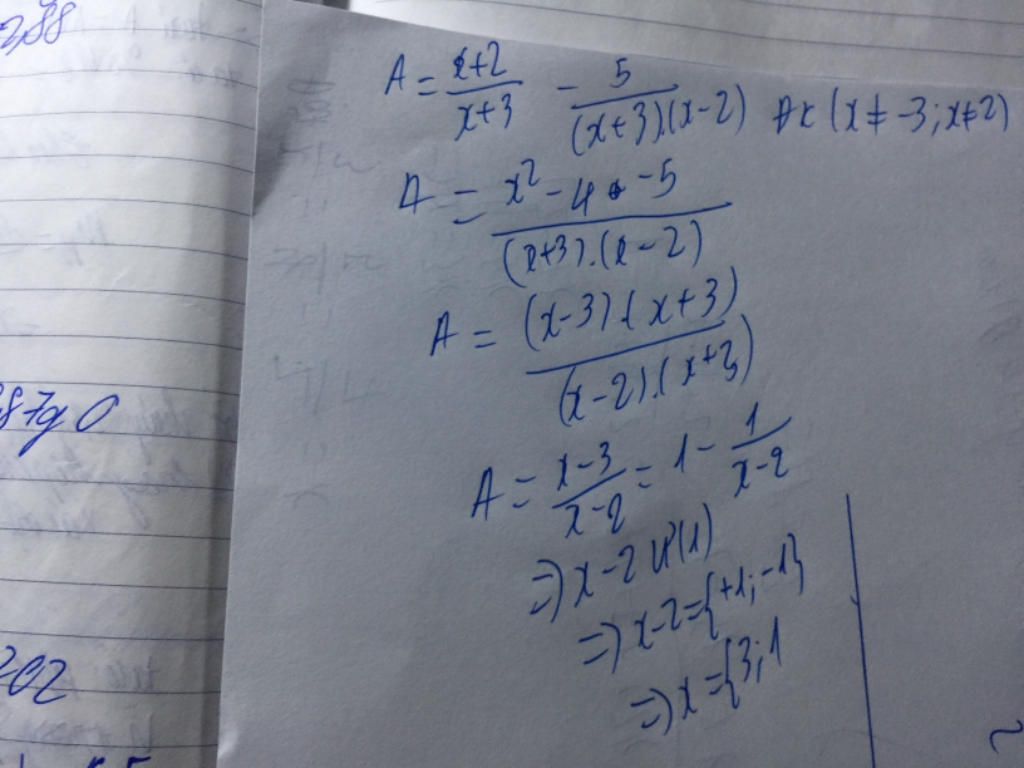 2,88
A = \frac{x+2}{x+3} - \frac{5}{(x+3).(x-2)} ĐK (x ≠ -3; x ≠ 2)
A = \frac{x^2 - 4 - 5}{(x+3).(x-2)}
A = \frac{(x-3).(x+3)}{(x-2).(x+3)}
A = \frac{x-3}{x-2} = 1 - \frac{1}{x-2}
=> x-2 Ư(1)
=> x-2 = {+1; -1}
=> x = {3; 1
87g O
202